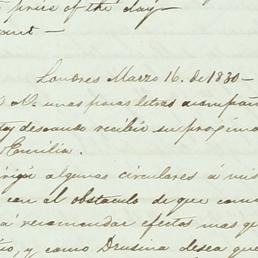 price of the day
Londres Marzo 16. de 1830 -
unas pocas letras acompañ
deseando recibir su proximo
Emilia.
algunas circulares á mis
con al obstaculo de que como
á recomendar efectos mas que
y como Drusina desea que